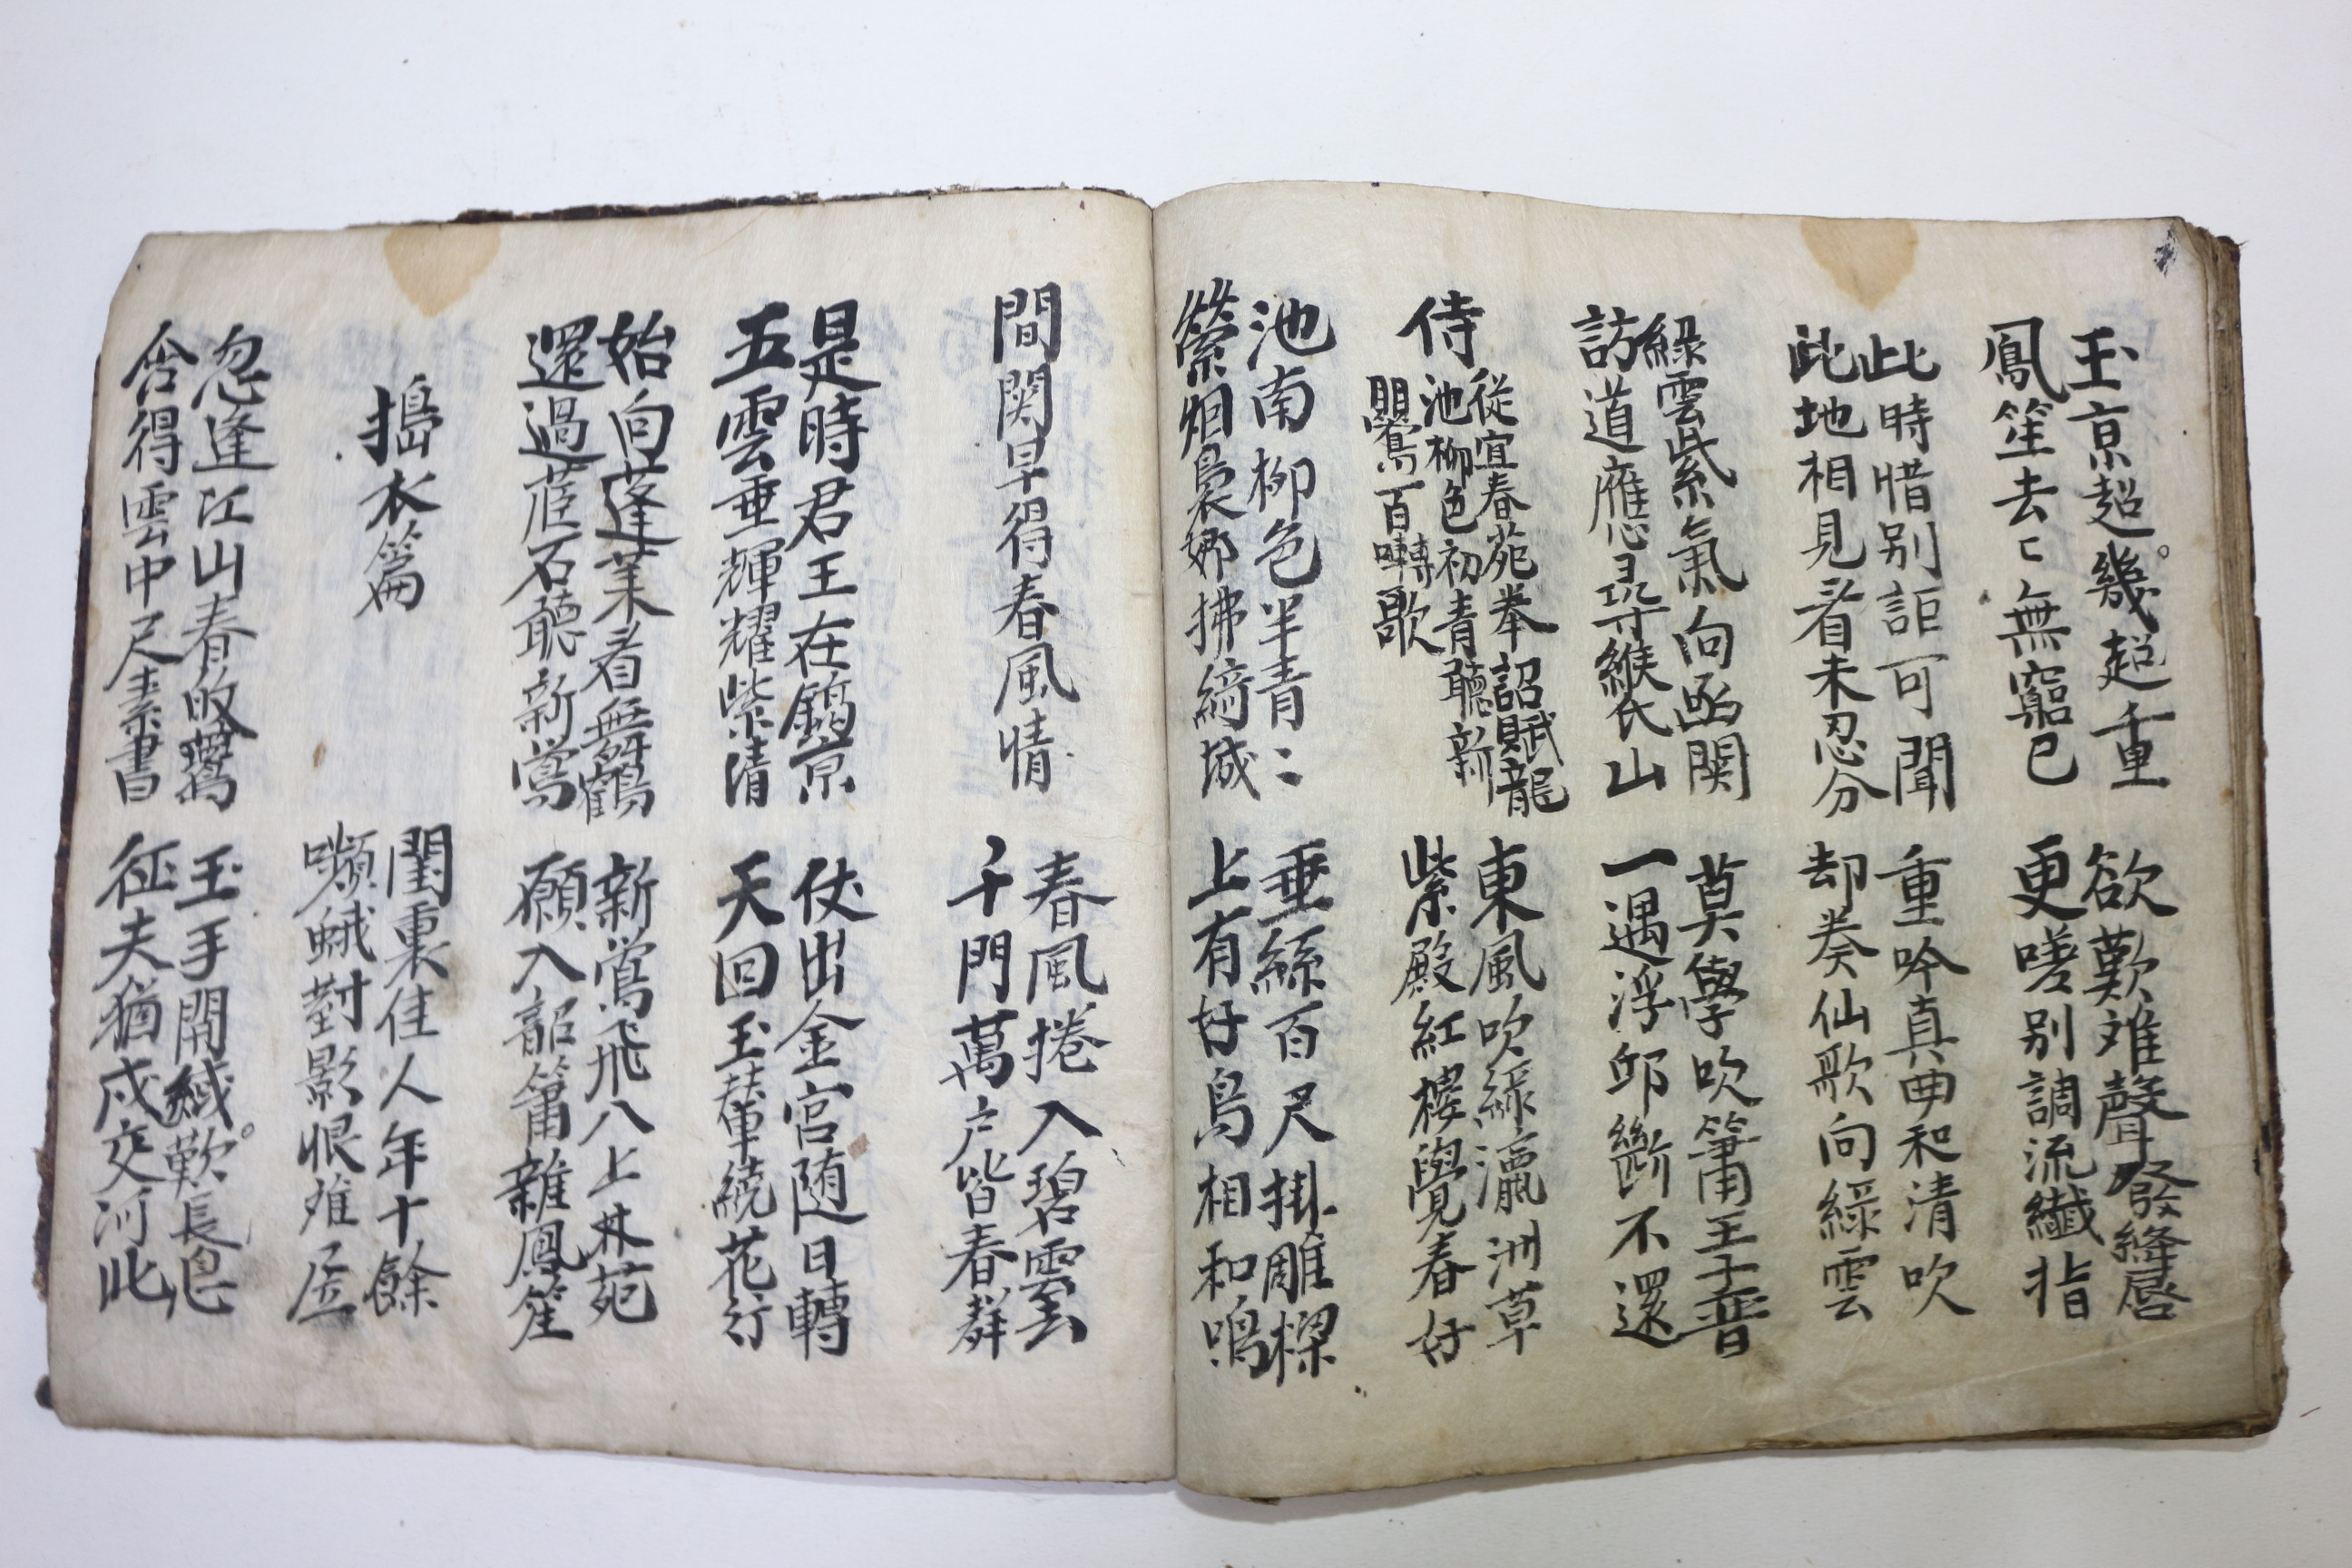 玉京超幾超重
鳳笙去〻無窮已
欲歎难聲發絳唇
更嗟别調流纖指
此時惜别詎可聞
此地相見看未忍分
重吟真曲和清吹
却奏仙歌向綠雲
綠雲紫氣向函関
訪道應尋緱氏山
莫學吹簫王子晉
一遇浮邱斷不還
侍從宜春苑奉詔賦龍
池柳色初青聽新
鸎百囀歌
東風吹綠瀛洲草
紫殿紅樓覺春好
池南柳色半青〻
縈烟裊娜拂綺城
垂絲百尺掛雕樑
上有好鳥相和鳴
間関早得春風情
春風捲入碧雲
千門萬戶皆春群
是時君王在鎬京
五雲垂輝耀紫清
仗出金宮随日轉
天回玉輦繞花行
始向蓬莱看舞鶴
還過茝石聽新鶯
新鶯飛入上林苑
願入韶簫雜鳳笙
搗衣篇
閨裏佳人年十餘
嚬蛾對影恨难居
忽逢江山春敀鷰
含得雲中尺素書
玉手開緘歎長息
征夫猶戍交河北